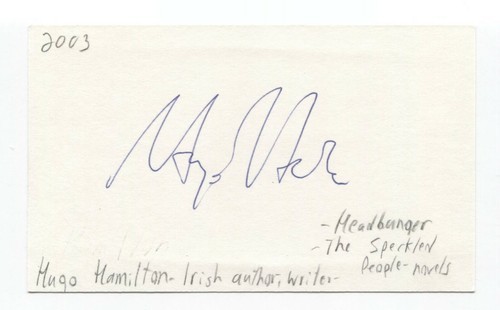 2003
Hugo Hamilton
- Headbanger
- The Speckled
People - novels
Hugo Hamilton - Irish author, writer -